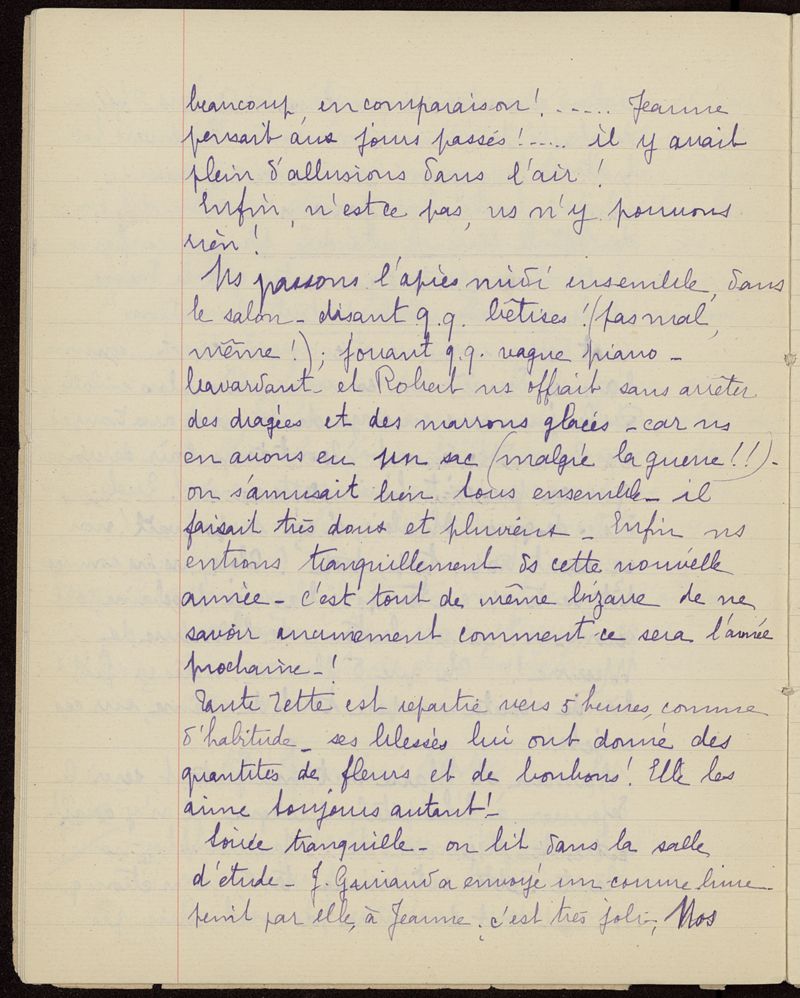 beaucoup, en comparaison! ..... Jeanne
pensait aux jours passés!..... il y avait
plein d'allusions dans l'air!
Enfin, n'est ce pas, ns n'y pouvons
rien!
Ns passons l'après midi ensemble, dans
le salon - disant q.q. bêtises! (pas mal,
même!); jouant q.q. vague piano -
bavardant - et Robert ns offrait sans arrêter
des dragées et des marrons glacés - car ns
en avons eu un sac (malgré la guerre!!) -
on s'amusait bien tous ensemble - il
faisait très doux et pluvieux - Enfin ns
entrons tranquillement ds cette nouvelle
année - c'est tout de même bizarre de ne
savoir aucunement comment ce sera l'année
prochaine - !
Tante Zette est repartie vers 5 heures, comme
d'habitude - ses blessés lui ont donné des
quantités de fleurs et de bonbons! Elle les
aime toujours autant! -
Soirée tranquille - on lit dans la salle
d'étude - J. a envoyé un couvre livre -
peint par elle, à Jeanne; c'est très joli, Nos